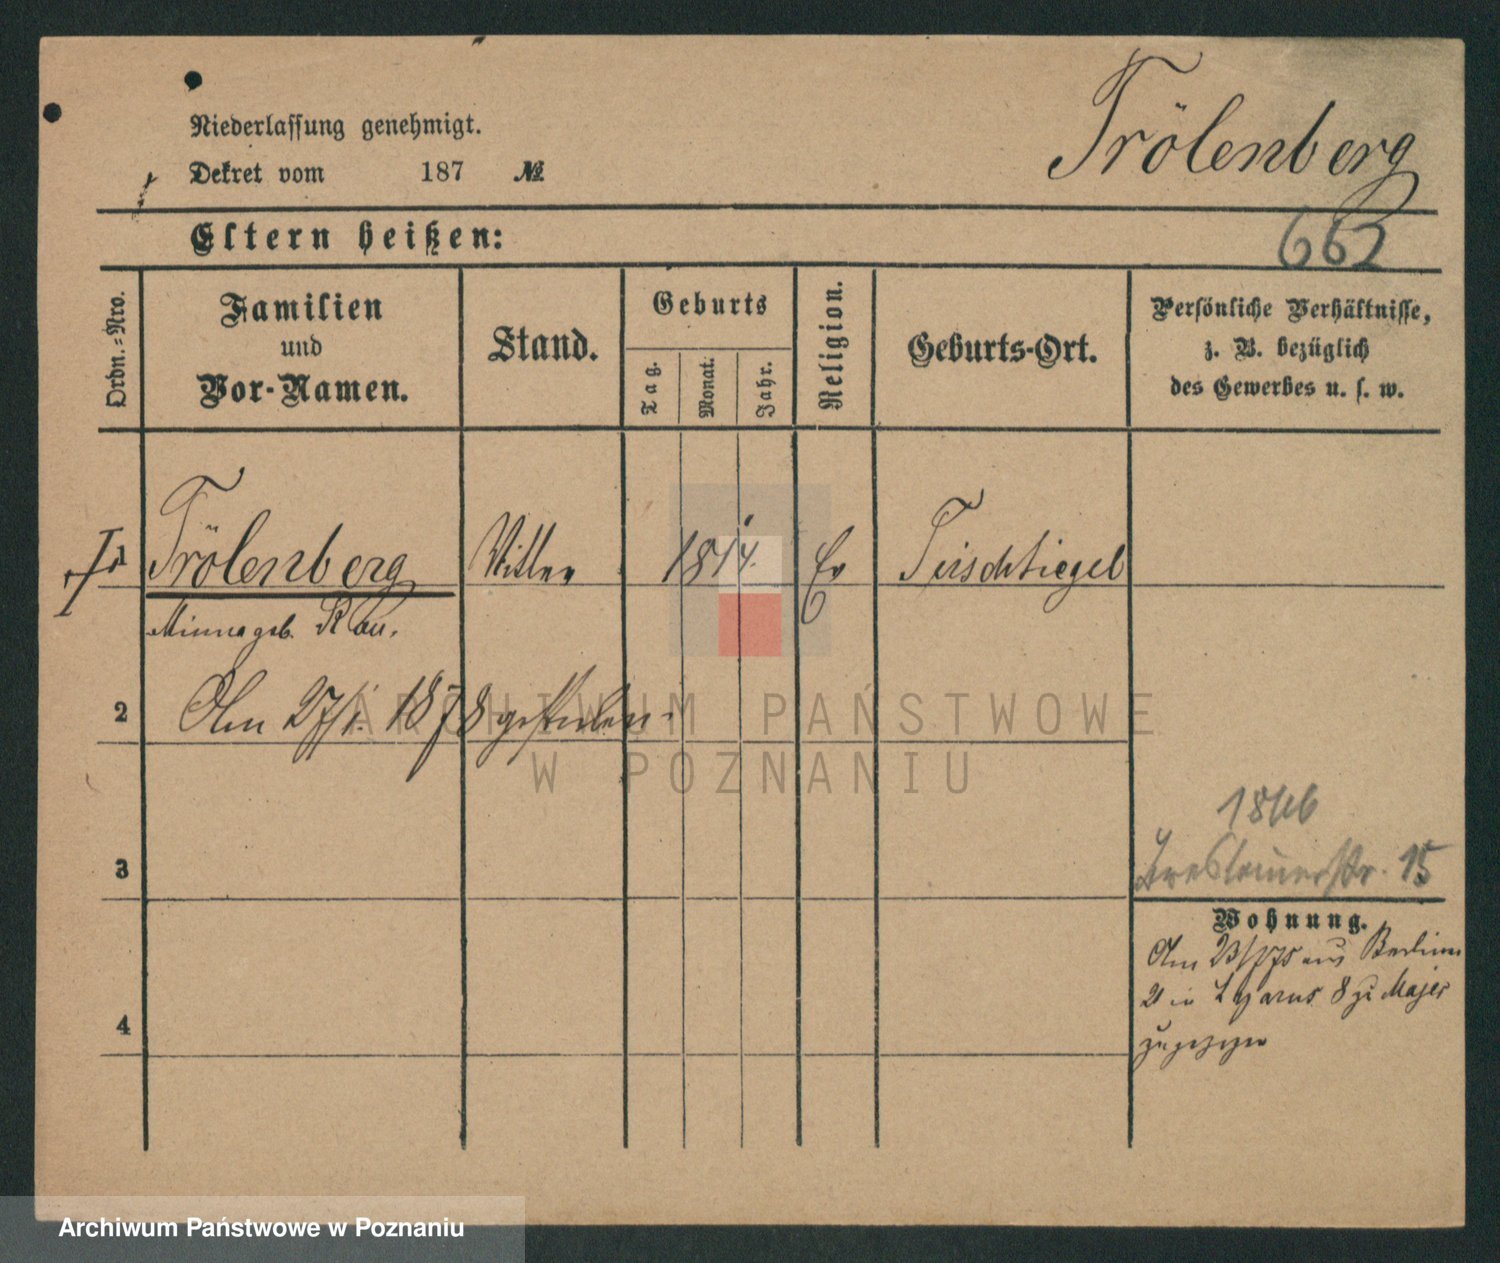 Trölenberg
Niederlassung genehmigt.
Dekret vom 187 №
Eltern heißen:
662
Ordn.-Nro.
Familien
und
Vor-Namen.
Stand.
Geburts
Tag.
Monat.
Jahr.
Religion.
Geburts-Ort.
Persönliche Verhältnisse,
z. B. bezüglich
des Gewerbes u. s. w.
1 Trölenberg 1814. Ev Tirschtiegel
Minna geb. Rau.
2 Am 27/1. 1878 gestorben.
3
15
Wohnung.
Am 23/ 75 aus Berlin
8 zu Majer
zugezogen
4
ARCHIWUM PAŃSTWOWE
W POZNANIU
Archiwum Państwowe w Poznaniu